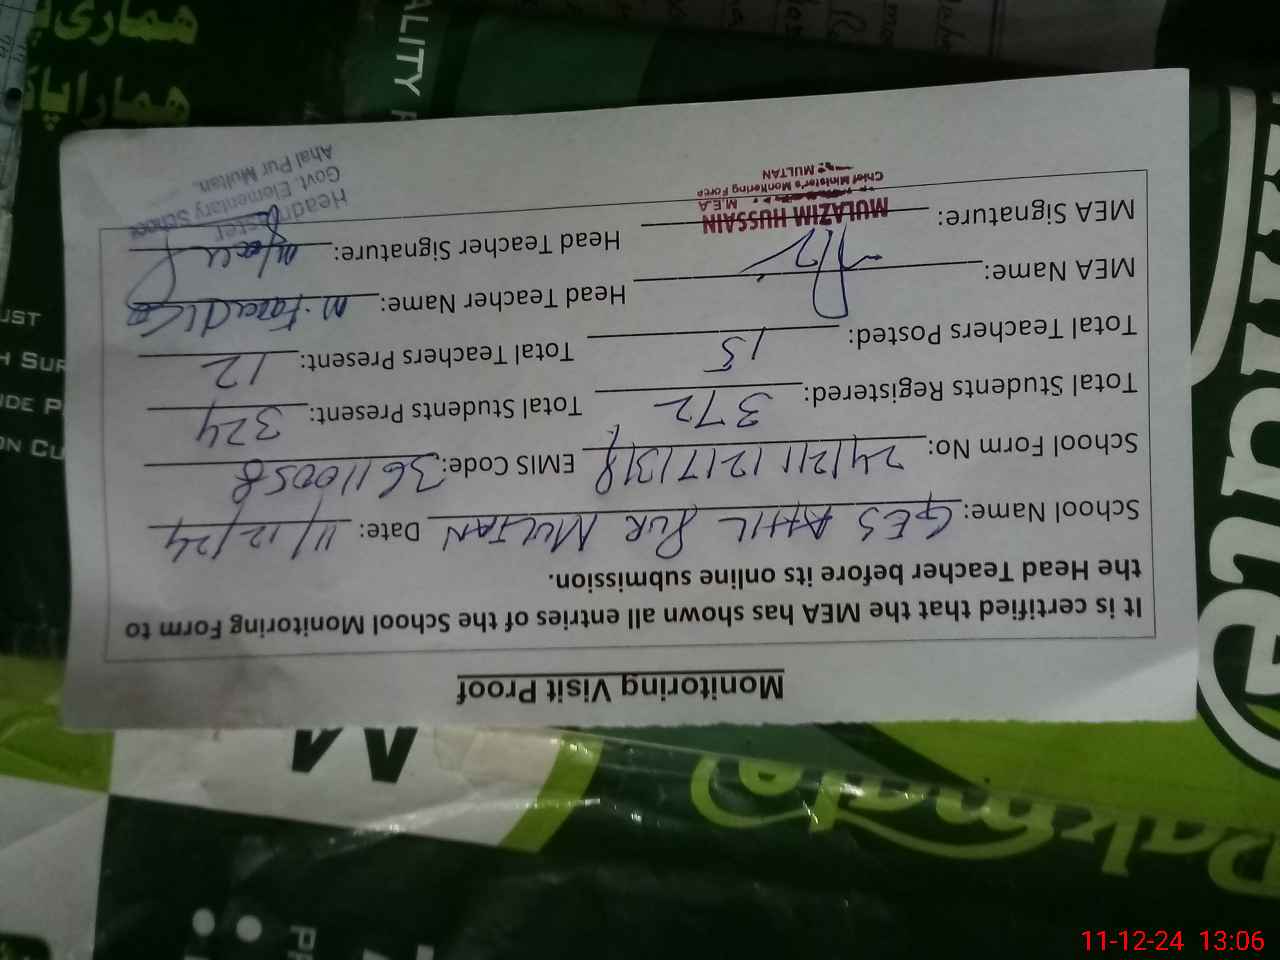 Monitoring Visit Proof
It is certified that the MEA has shown all entries of the School Monitoring Form to
the Head Teacher before its online submission.
School Name: GES AHIL PUR MULTAN Date: 11/12/24
School Form No: 24/2/1/12/17/3/8 EMIS Code: 36110058
Total Students Registered: 372 Total Students Present: 324
Total Teachers Posted: 15 Total Teachers Present: 12
MEA Name: Head Teacher Name:
MEA Signature: Head Teacher Signature:
MULAZIM HUSSAIN
M.E.A
Chief Minister's Monitoring Force
MULTAN
Headmaster
Govt. Elementary School
Ahal Pur Multan.
Pakmala
ALITY
ھماری
ھمارا پاک
UST
H SUR
IDE P
ON CU
11-12-24 13:06